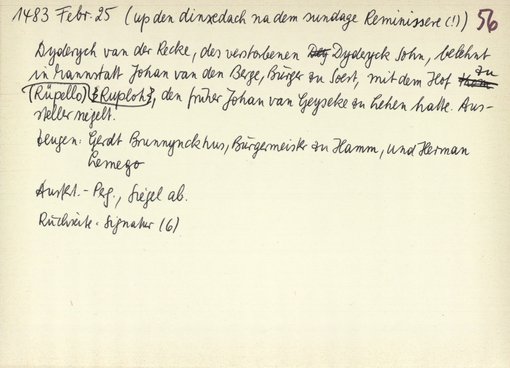 1483 Febr. 25 (up den dinxedach na dem sundage Reminissere (!)) 56
Dyderych van der Recke, des verstorbenen Dyderyck Sohn, belehnt
in Mannstatt Johan van den Berge, Bürger zu Soest, mit dem Hof zu
(Rüpello) {Ruploh}, den früher Johan van Geyseke zu Lehen hatte. Aus-
steller siegelt.
Zeugen: Gerdt Brunnynckhus, Bürgermeister zu Hamm, und Herman
Lemego
Ausf. - Pkg., Siegel ab.
Rückseite: Signatur (6)